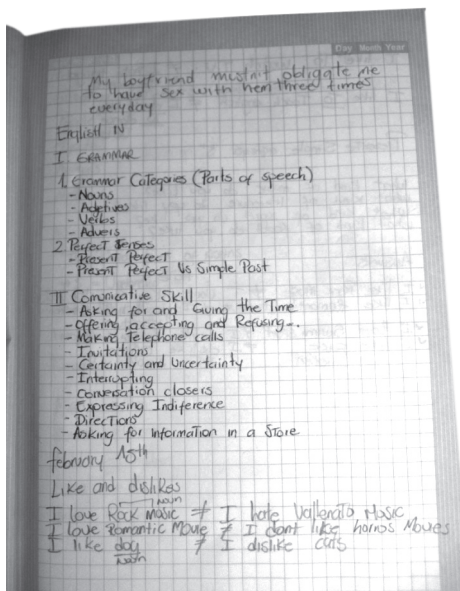 Day Month Year
My boyfriend mustn't obligate me
to have sex with hem three times
everyday
English IV
I GRAMMAR
1. Grammar Categories (Parts of speech)
- Nouns
- Adjetives
- Verbs
- Advers
2 Perfect Tenses
- Present Perfect
- Present Perfect Vs Simple Past
II Comunicative Skill
- Asking for and Giving the Time
- Offering, accepting and Refusing-.
- Making Telephone calls
- Invitations
- Certainty and uncertainty
- Interrupting
- conversation closers
- Expressing Indiference
- Directions
- Asking for information in a Store
february 15th
Like and dislikes
Noun
I love Rock music ≠ I hate Vallenato Music
I love romantic Movie ≠ I dont like horros Movies
I like dog ≠ I dislike cats
Noun